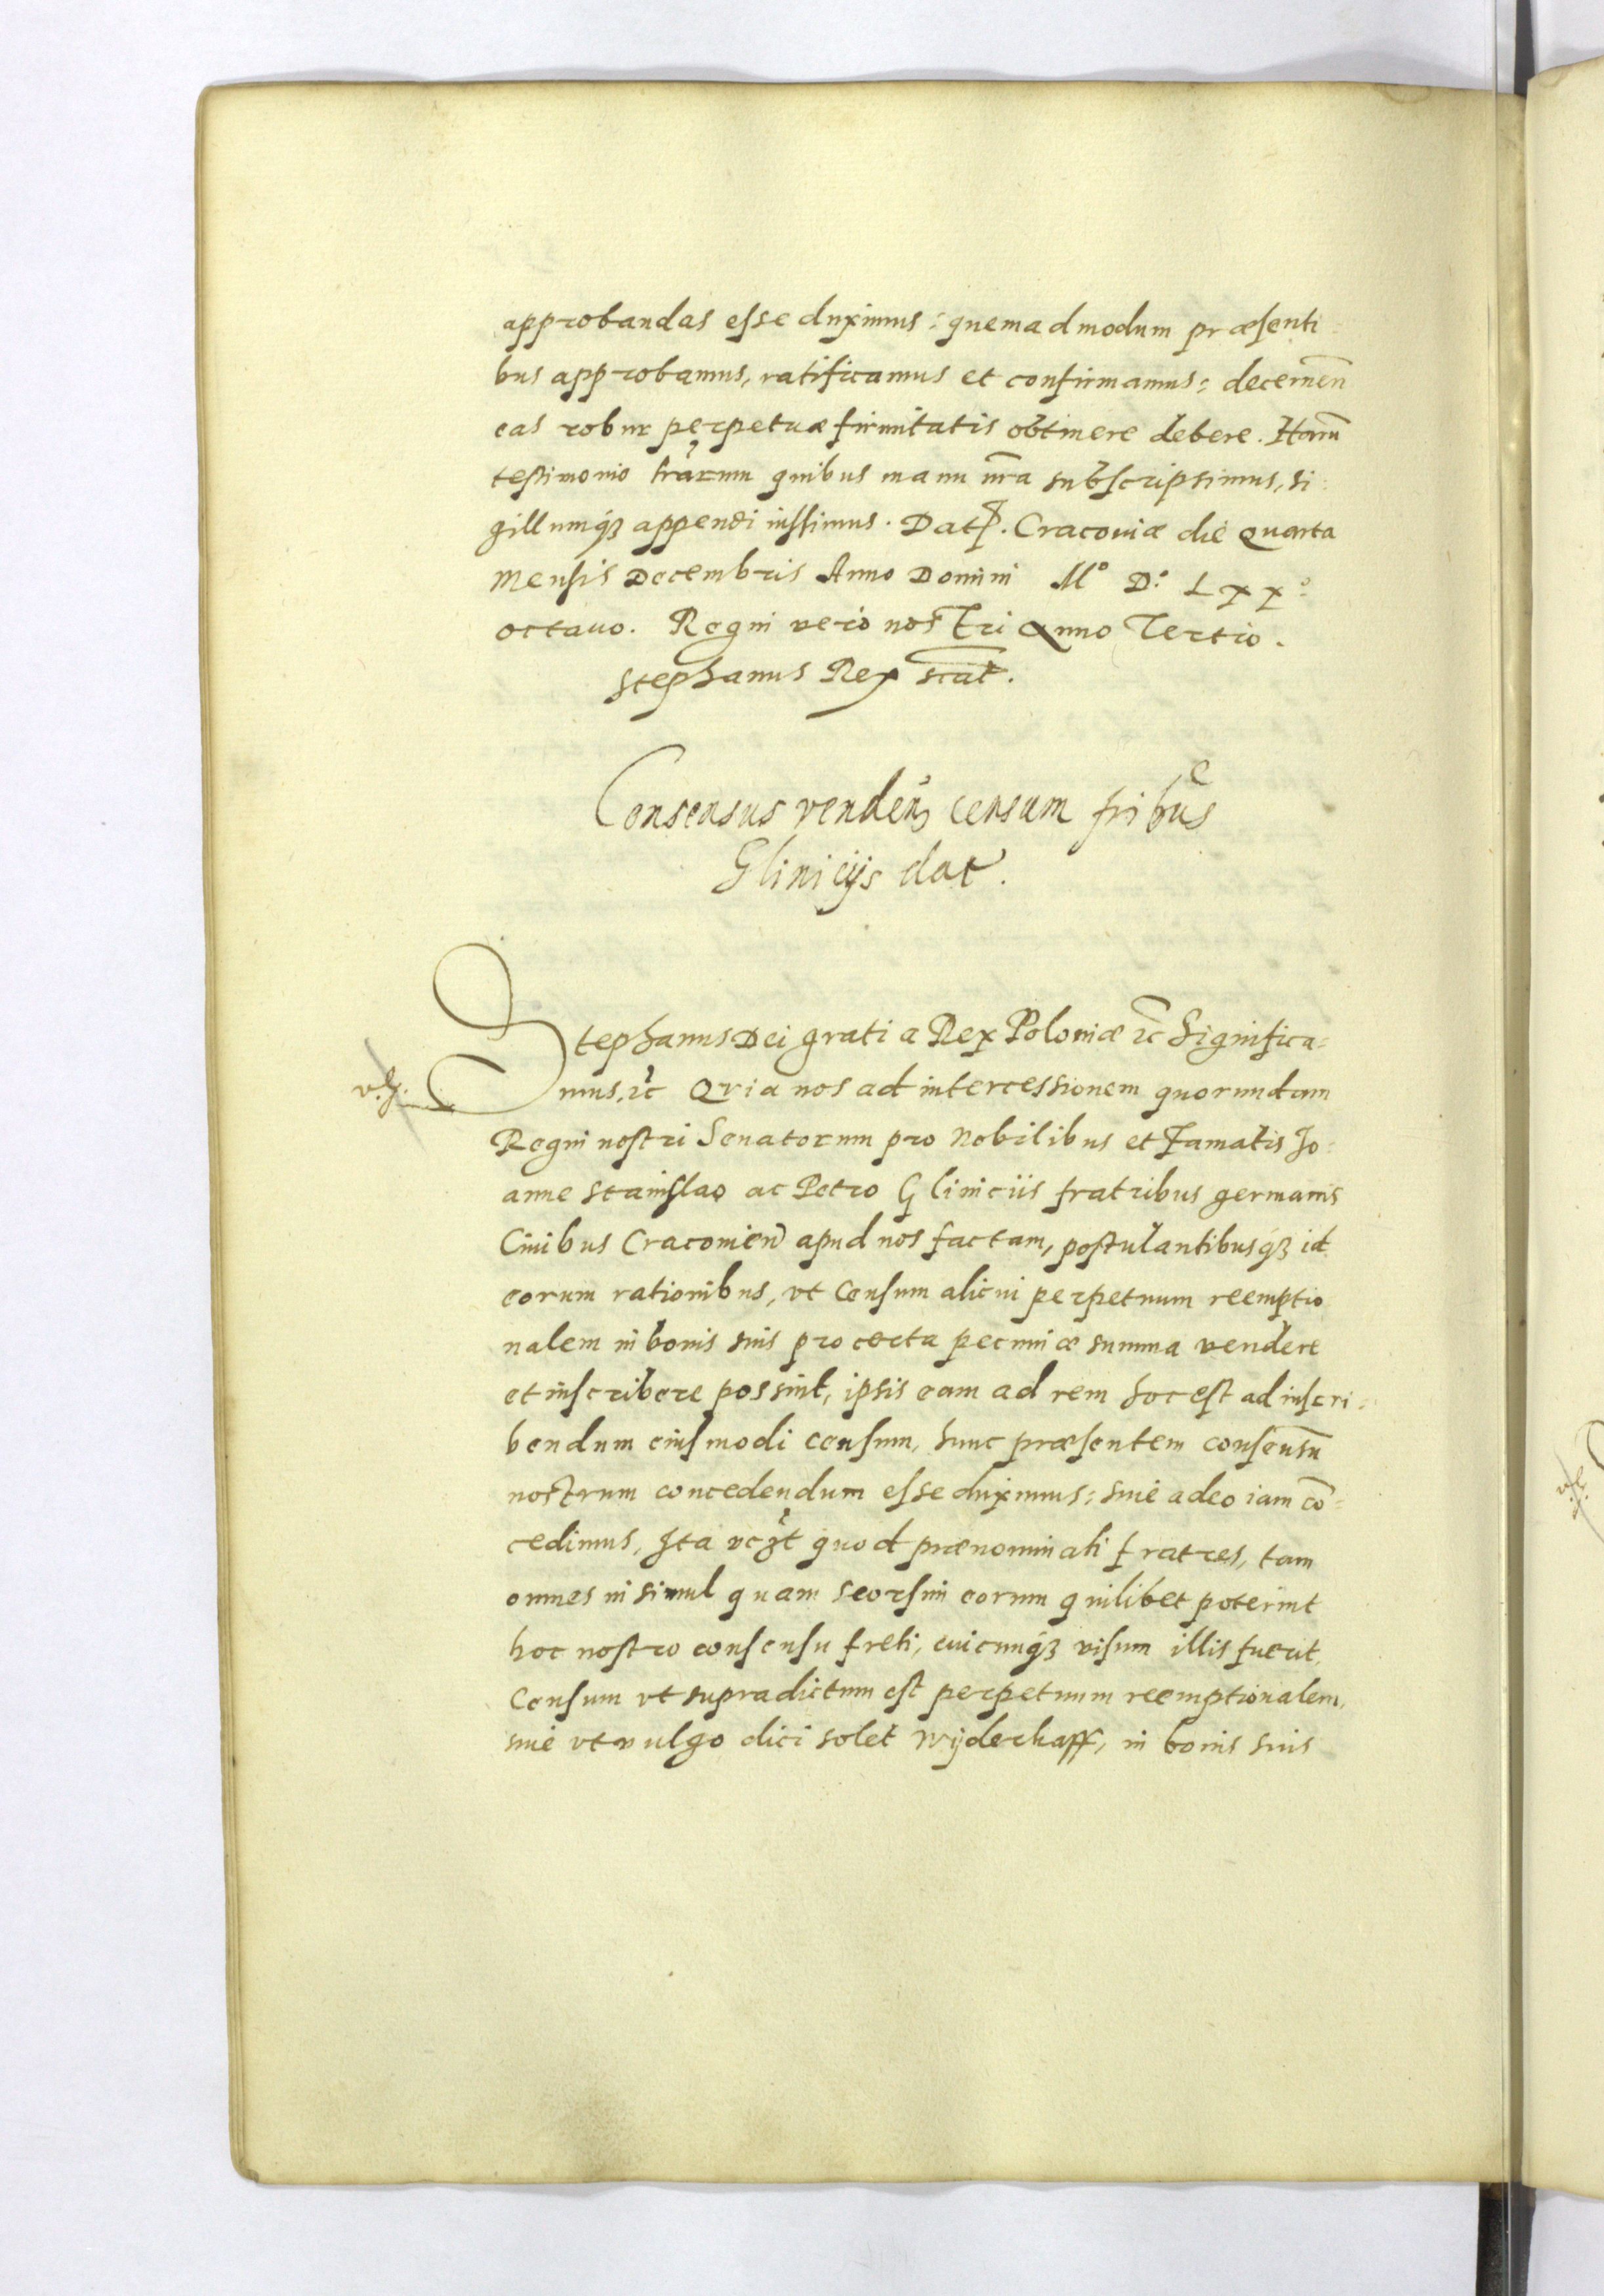 approbandas esse duximus: quemadmodum præsenti
bus approbamus, ratificamus et confirmamus: decernen̄
eas robur perpetuæ firmitatis obtinere debere. Harū
testimonio l̄rarum quibus manu n̄ra subscripsimus, si:
gillumq́ꝫ appendi iussimus. Dat. Cracouiæ die Quarta
Mensis Decembris Anno Domini M° D.° LXX.°
octauo. Regni vero nostri Anno Tertio.
Stephanus Rex sc̄at.
Consensus venden̄ censum fribus
Glinicijs dat.
Stephanus Dei gratia Rex Poloniæ ꝛc̄ Significa=
mus, ꝛc̄ Quia nos ad intercessionem quorundam
Regni nostri Senatorum pro Nobilibus et Famatis Jo=
anne Stanislao ac Petro Gliniciis fratribus germanis
Ciuibus Cracouien̄ apud nos factam, postulantibusq́ꝫ id
eorum rationibus, vt Censum alicui perpetuum reemptio
nalem in bonis suis pro certa pecuniæ summa vendere
et inscribere possint, ipsis eam ad rem hoc est ad inscri=
bendum eiusmodi censum, hunc præsentem consensū
nostrum concedendum esse duximus: siue adeo iam cō=
cedimus, Ita vꝫt quod prænominati fratres, tam
omnes in simul quam seorsim eorum quilibet poterint
hoc nostro consensu freti, cuicunq́ꝫ visum illis fuerit,
Censum vt supradictum est perpetuum reemptionalem,
siue vt vulgo dici solet Wijderkaff, in bonis suis